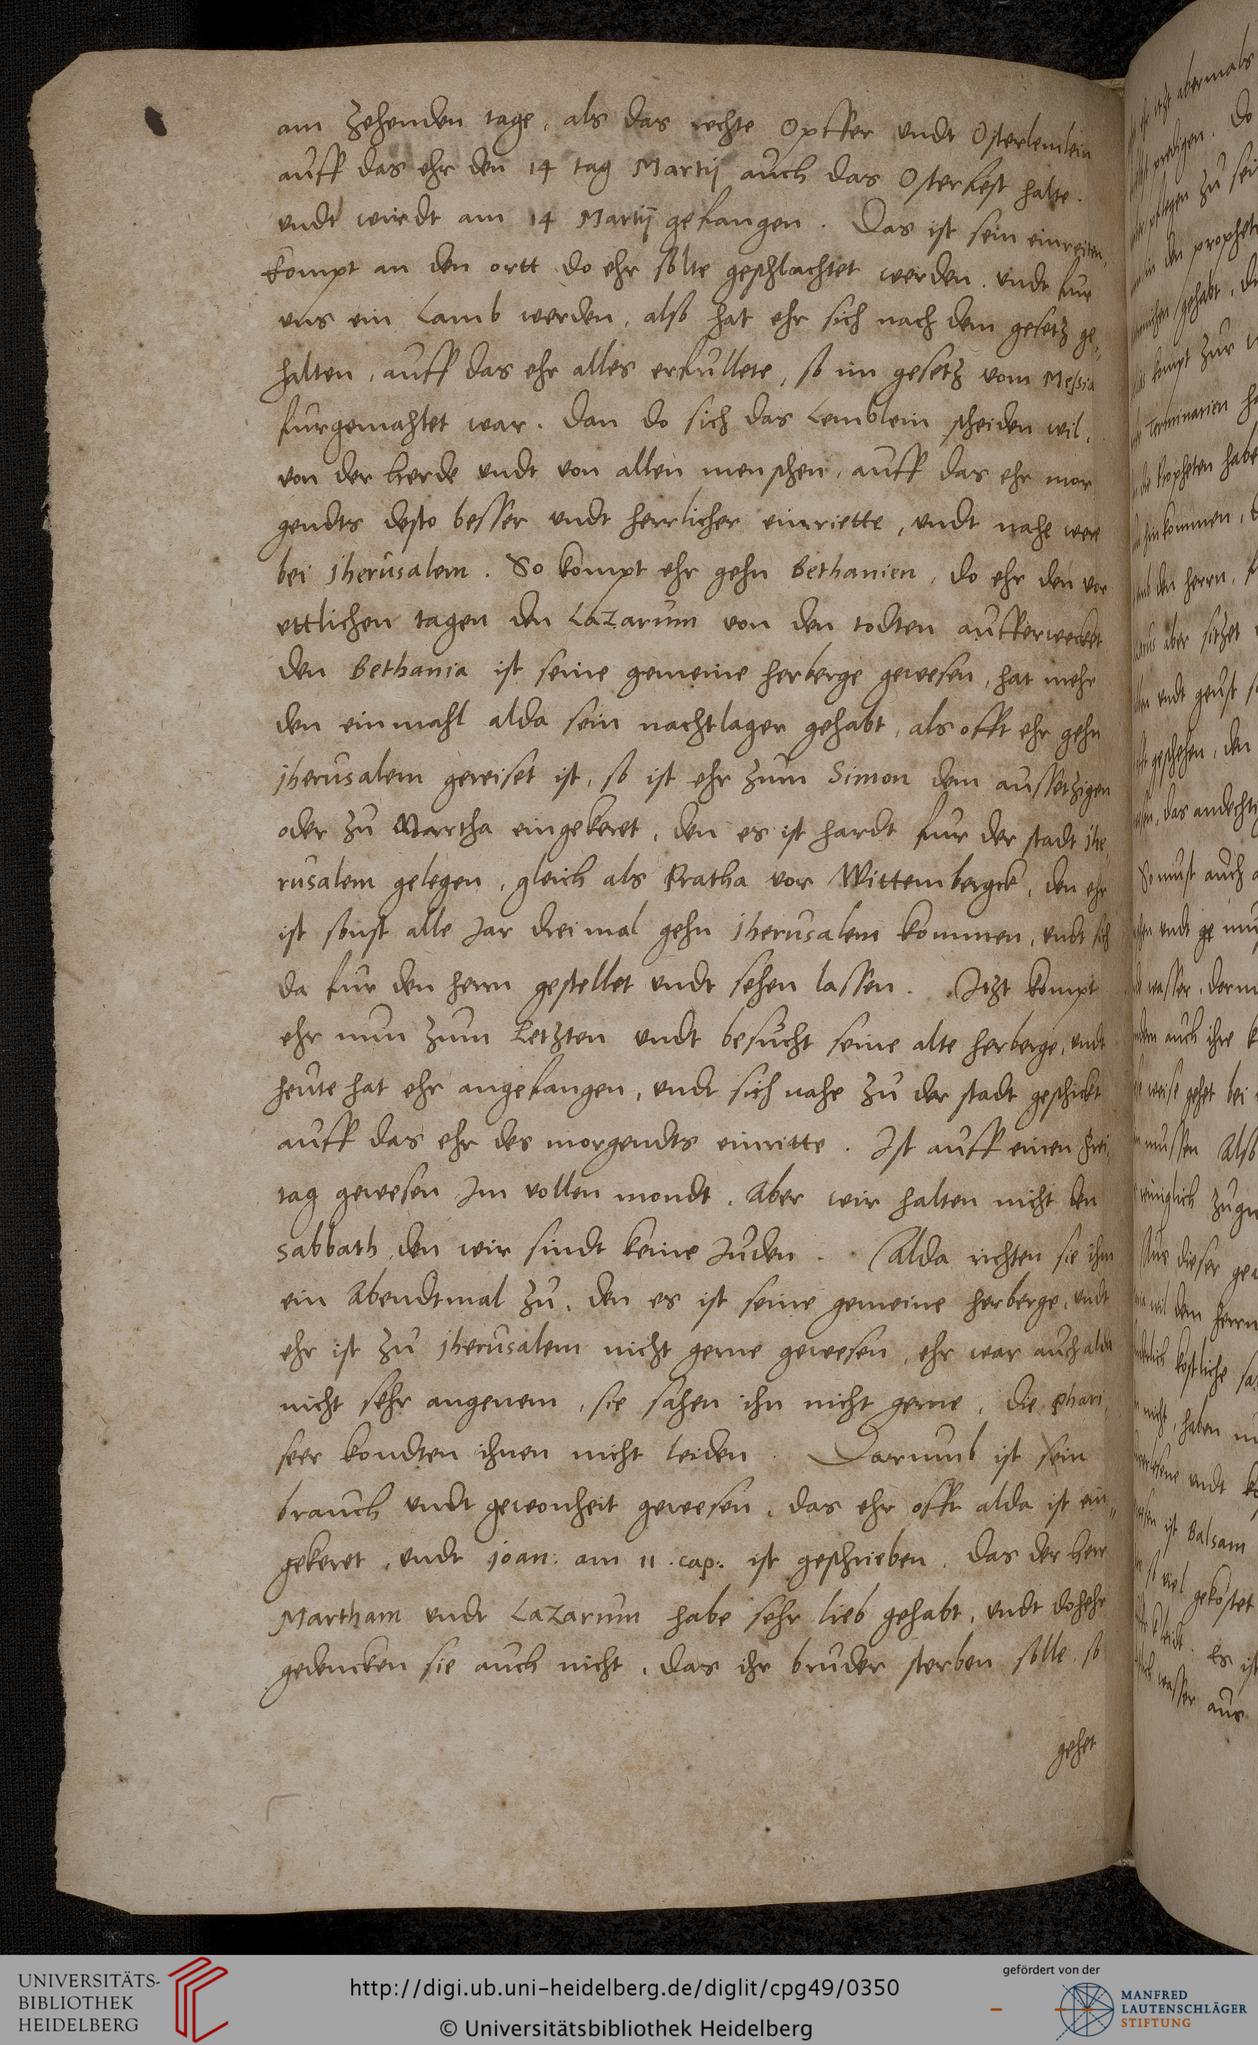 am zehenden tage, als das rechte Opffer undt Osterlemlein
auff das ehr den 14 tag Martij auch das Osterfest halte.
undt wirdt am 14 Martij gefangen. Das ist sein einreiten,
kompt an den ortt do ehr solte geschlachtet werden. undt fur
uns ein Lamb werden, also hat ehr sich nach dem gesetz ge„
halten, auff das ehr alles erfullete, so im gesetz vom Messia
furgemahlet war. Dan do sich das Lemblein scheiden wil,
von der herde undt von allen menschen, auff das ehr mor
gendts desto besser undt herrlicher einriette, undt nahe were
bei Jherusalem. So kompt ehr gehn Bethanien, do ehr den vor
ettlichen tagen den Lazarum von den todten aufferwecket
den Bethania ist seine gemeine herberge gewesen, hat mehr
den einmahl alda sein nachtlager gehabt, als offt ehr gehn
Jherusalem gereiset ist, so ist ehr zum Simon dem aussetzigen
oder zu Martha eingekeret, den es ist hardt fur der stadt Jhe„
rusalem gelegen, gleich als Pratha vor Wittembergk, den ehr
ist sonst alle Jar drei mal gehn Jherusalem kommen, undt sich
da fur den herrn gestellet undt sehen lassen. Itzt kompt
ehr nun zum Letzten undt besucht seine alte herberge, undt
heute hat ehr angefangen, undt sich nahe zu der stadt geschickt
auff das ehr des morgendts einritte. Ist auff einen frei„
tag gewesen Im vollen mondt. Aber wir halten nicht den
Sabbath, den wir sindt keine Juden. Alda richten sie ihm
ein Abendtmal zu, den es ist seine gemeine herberge, undt
ehr ist zu Jherusalem nicht gerne gewesen, ehr war auch alda
nicht sehr angenem, sie sahen ihn nicht gerne, die Phari„
seer kondten ihnen nicht leiden. Darumb ist sein
brauch undt gewonheit gewesen, das ehr offt alda ist ein„
gekeret, undt Joan: am 11. cap: ist geschrieben, das der herr
Martham undt Lazarum habe sehr lieb gehabt, undt dohehr
gedencken sie auch nicht, das ihr bruder sterben solle, so
gehet
UNIVERSITÄTS-
BIBLIOTHEK
HEIDELBERG
http://digi.ub.uni-heidelberg.de/diglit/cpg49/0350
© Universitätsbibliothek Heidelberg
gefördert von der
MANFRED
LAUTENSCHLÄGER
STIFTUNG